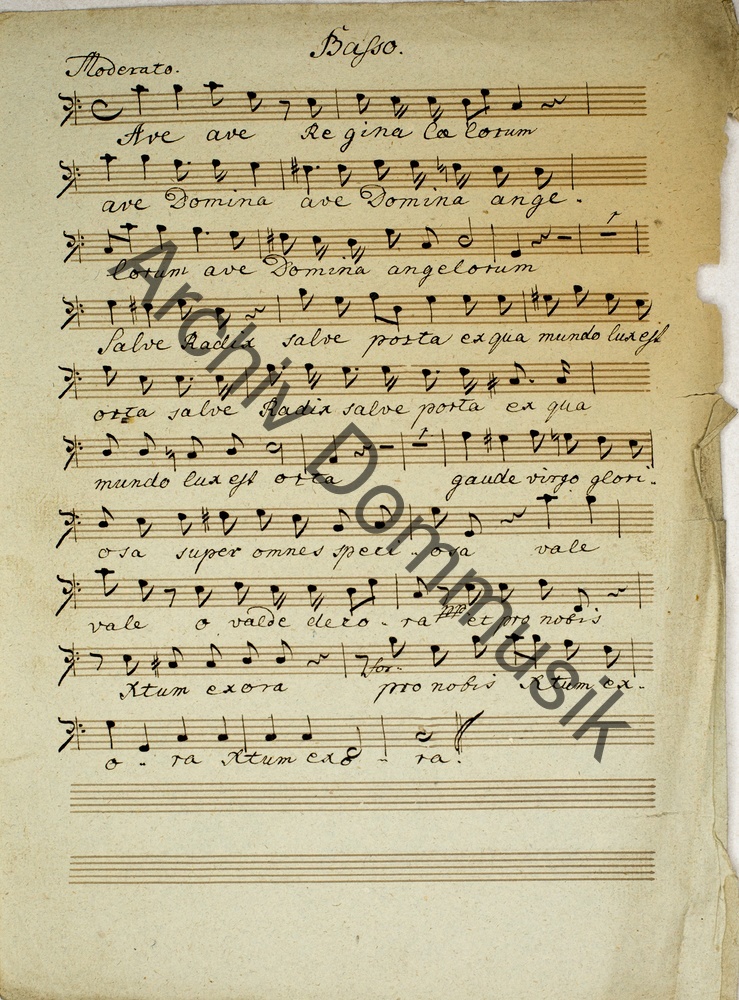 Basso.
Moderato.
Ave ave Regina Cœlorum
ave Domina ave Domina ange-
lorum ave Domina angelorum
Salve Radix salve porta ex qua mundo lux est
orta salve Radix salve porta ex qua
mundo lux est orta gaude virgo glori-
osa super omnes speci-osa vale
vale o valde deco-ra ppo et pro nobis
Xtum exora for: pro nobis Xtum ex-
o-ra Xtum exo-ra.
Archiv Dommusik